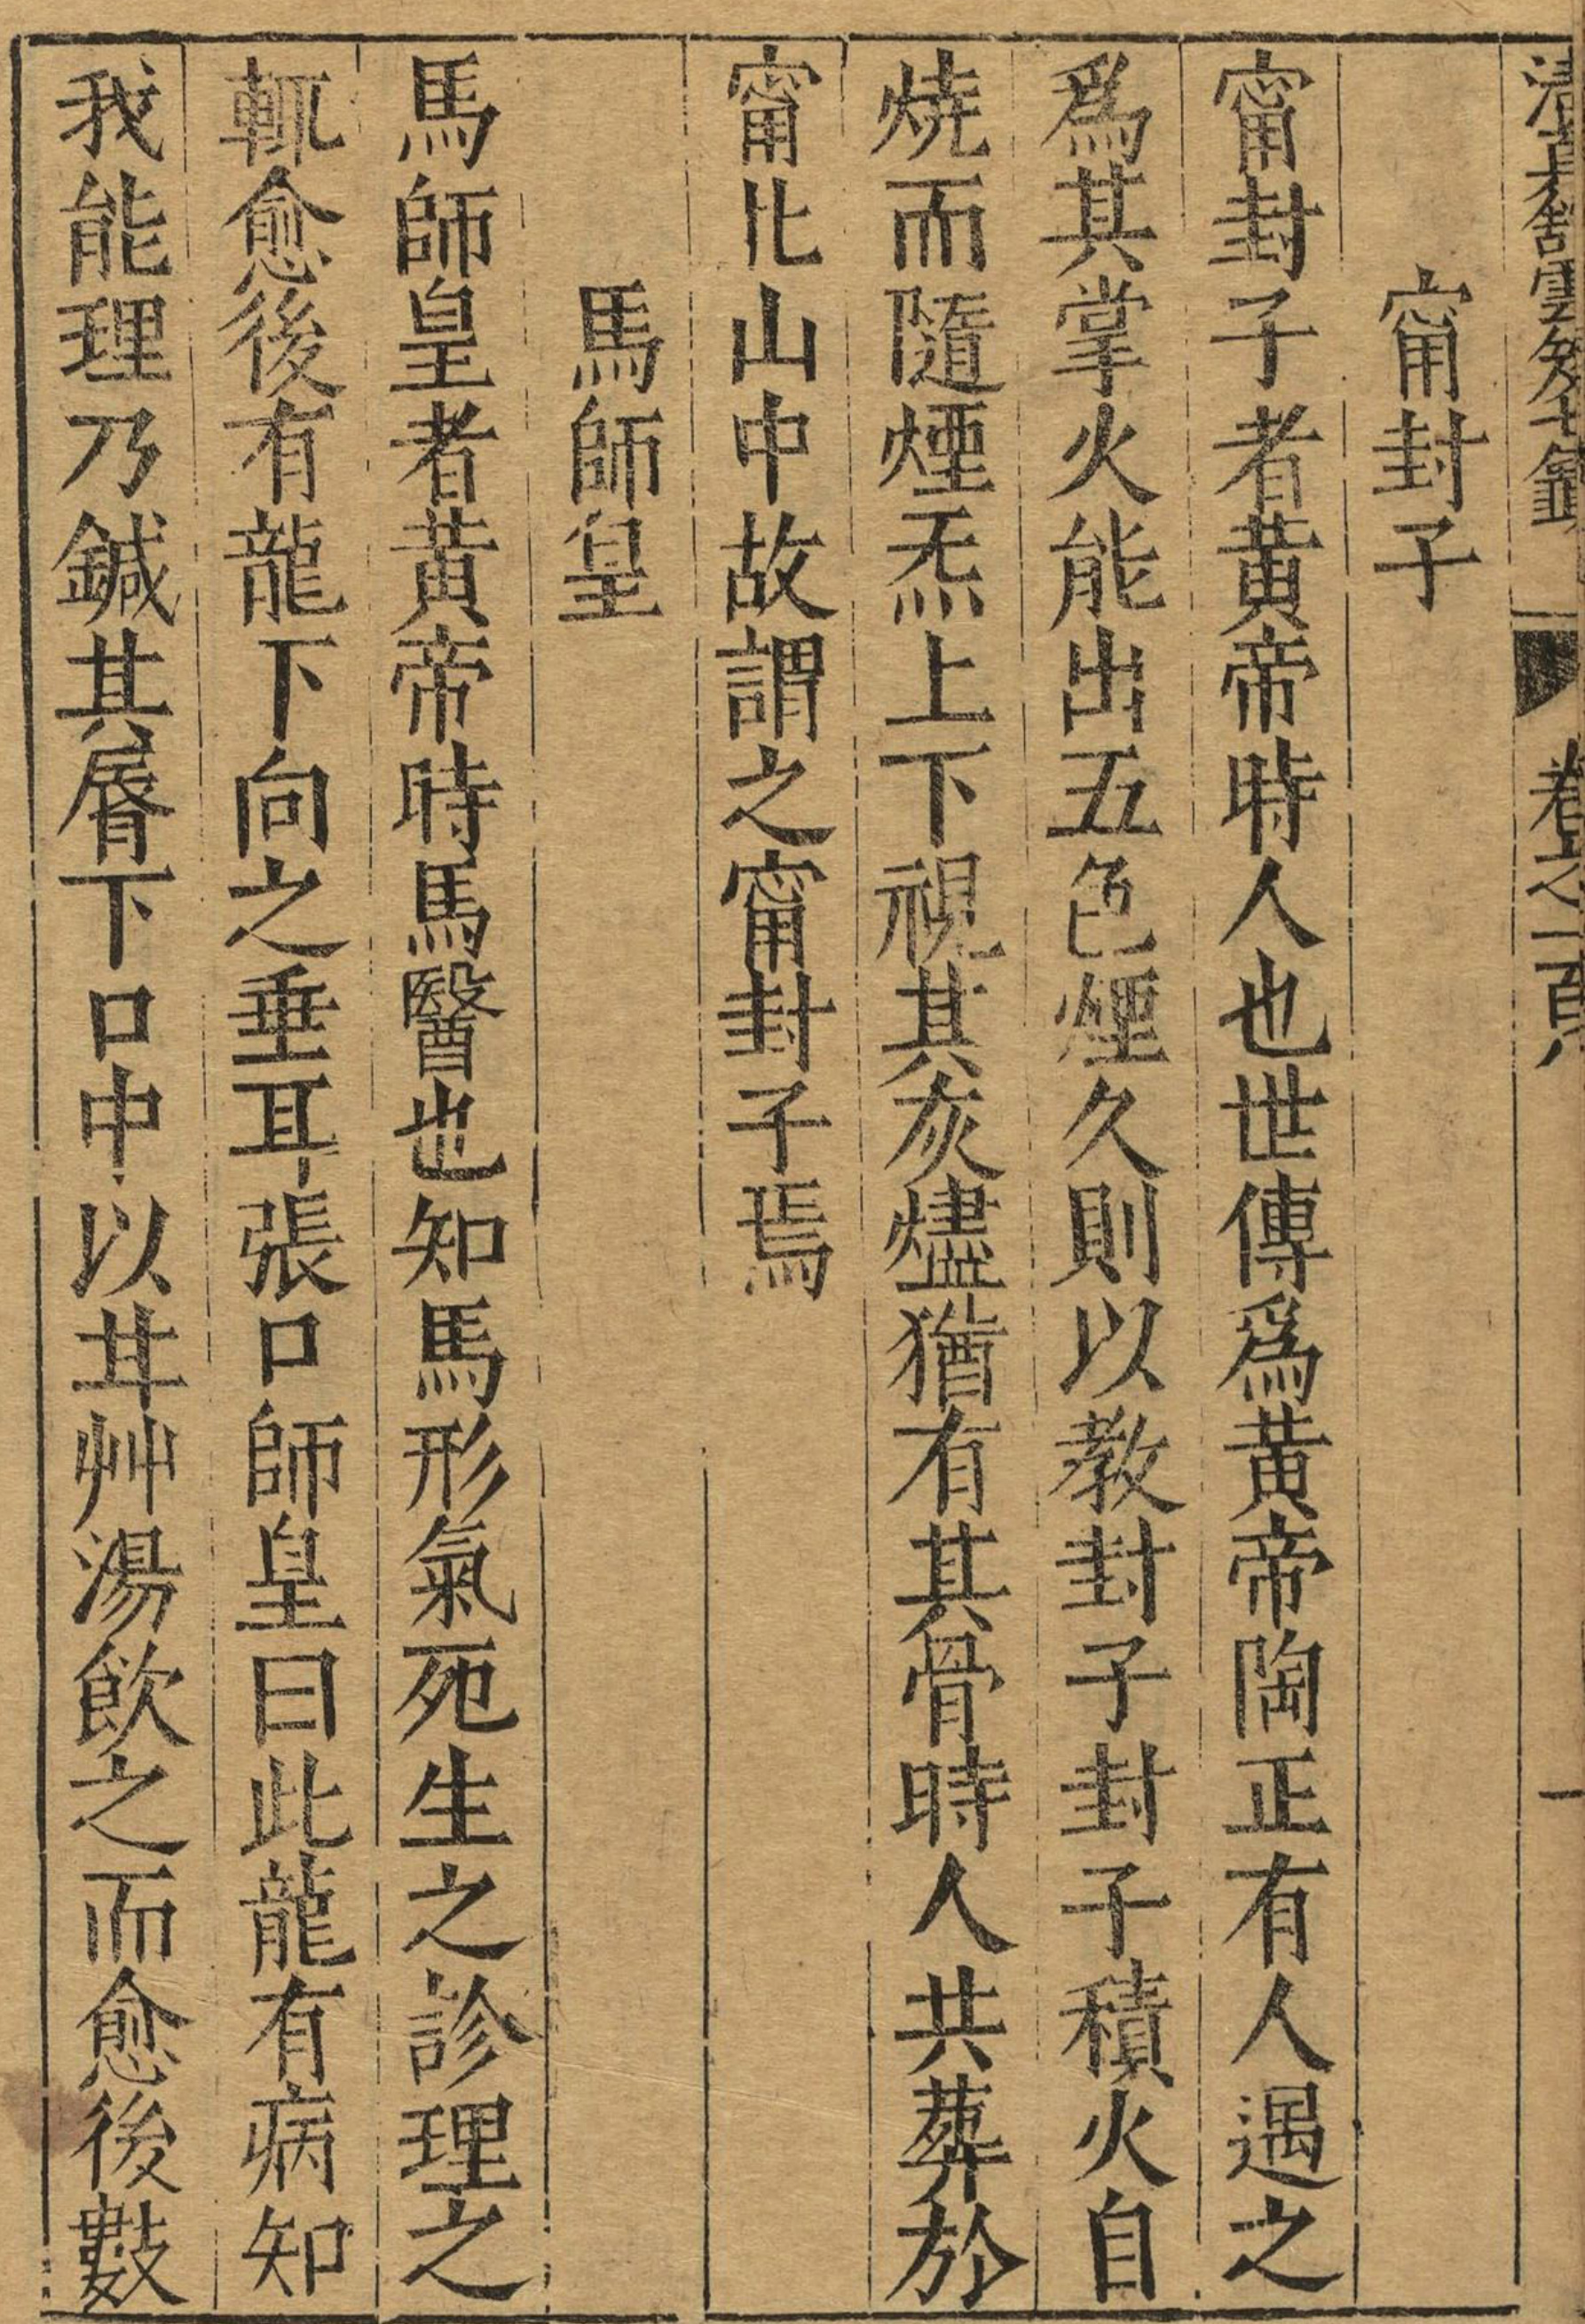 清真館雲笈七籤 卷之一百八 一
甯封子
甯封子者黃帝時人也世傳爲黃帝陶正有人遇之
爲其掌火能出五色煙久則以教封子封子積火自
燒而隨煙炁上下視其灰燼猶有其骨時人共葬於
甯北山中故謂之甯封子焉
馬師皇
馬師皇者黃帝時馬醫也知馬形氣死生之診理之
輒愈後有龍下向之垂耳張口師皇曰此龍有病知
我能理乃鍼其脣下口中以甘艸湯飲之而愈後數